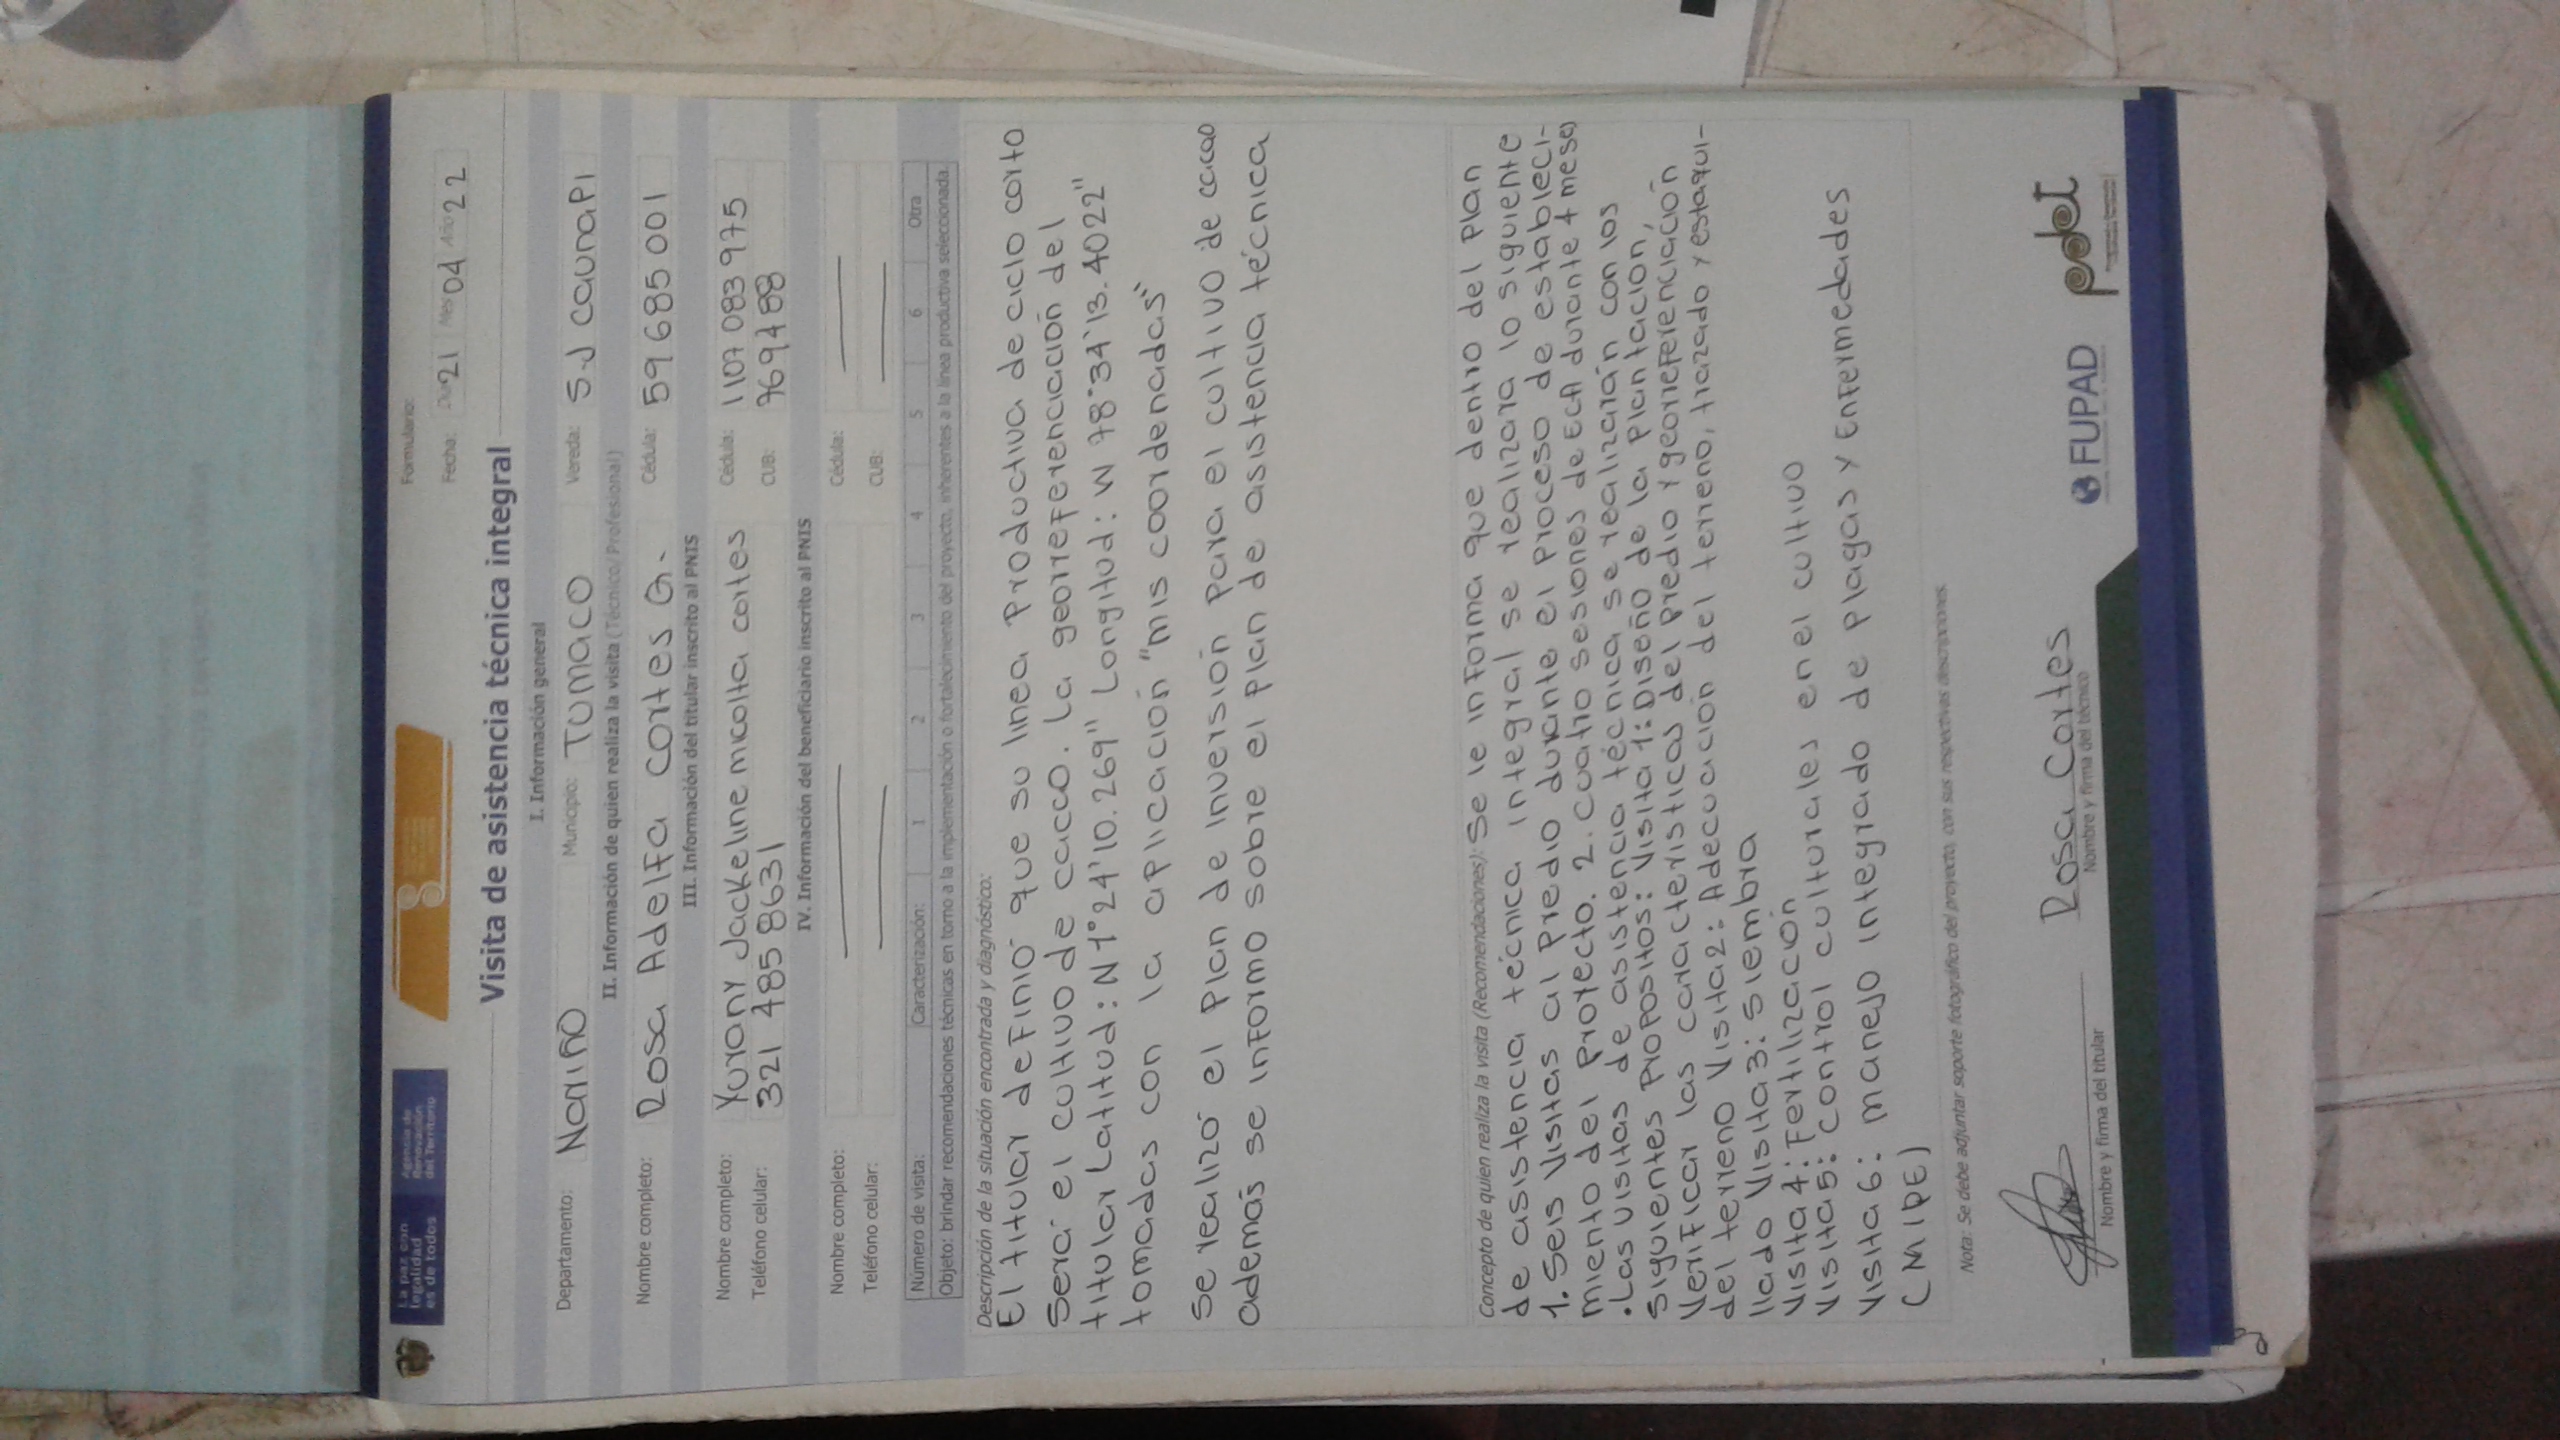 La paz con
legalidad
es de todos
Agencia de
Renovación
del Territorio
Formulario:
Fecha: Día 21 Mes 04 Año 22
Visita de asistencia técnica integral
I. Información general
Departamento: Nariño Municipio: Tumaco Vereda: S.J caunapi
II. Información de quien realiza la visita (Técnico/ Profesional)
Nombre completo: Rosa Adelfa cortes G. Cédula: 59 685 001
III. Información del titular inscrito al PNIS
Nombre completo: Yurany Jackeline micolta cortes Cédula: 1107 083 975
Teléfono celular: 321 485 8631 CUB: 769488
IV. Información del beneficiario inscrito al PNIS
Nombre completo: Cédula:
Teléfono celular: CUB:
Número de visita: Caracterización: 1 2 3 4 5 6 Otra
Objeto: brindar recomendaciones técnicas en torno a la implementación o fortalecimiento del proyecto, inherentes a la línea productiva seleccionada.
Descripción de la situación encontrada y diagnóstico:
El titular definió que su linea productiva de ciclo corto
Será el cultivo de cacao. La georreferenciación del
titular Latitud: N 1° 24' 10.269" Longitud: W 78° 34' 13.4022"
tomadas con la aplicación "mis coordenadas"
Se realizó el plan de inversión para el cultivo de cacao
además se informo sobre el plan de asistencia técnica
Concepto de quien realiza la visita (Recomendaciones): Se le informa que dentro del plan
de asistencia técnica integral se realizara lo siguiente
1. Seis visitas al predio durante el proceso de estableci-
miento del proyecto. 2. cuatro sesiones de ECA durante 4 meses
. Las visitas de asistencia técnica se realizarán con los
siguientes propositos: Visita 1: Diseño de la plantación,
Verificar las características del predio y georreferenciación
del terreno Visita 2: Adecuación del terreno, trazado y estaqui-
llado Visita 3: siembra
Visita 4: Fertilización
Visita 5: control culturales en el cultivo
Visita 6: manejo integrado de plagas y Enfermedades
(MIPE)
Nota: Se debe adjuntar soporte fotográfico del proyecto, con sus respectivas descripciones.
Rosa Cortes
Nombre y firma del titular Nombre y firma del técnico
FUPAD pdet